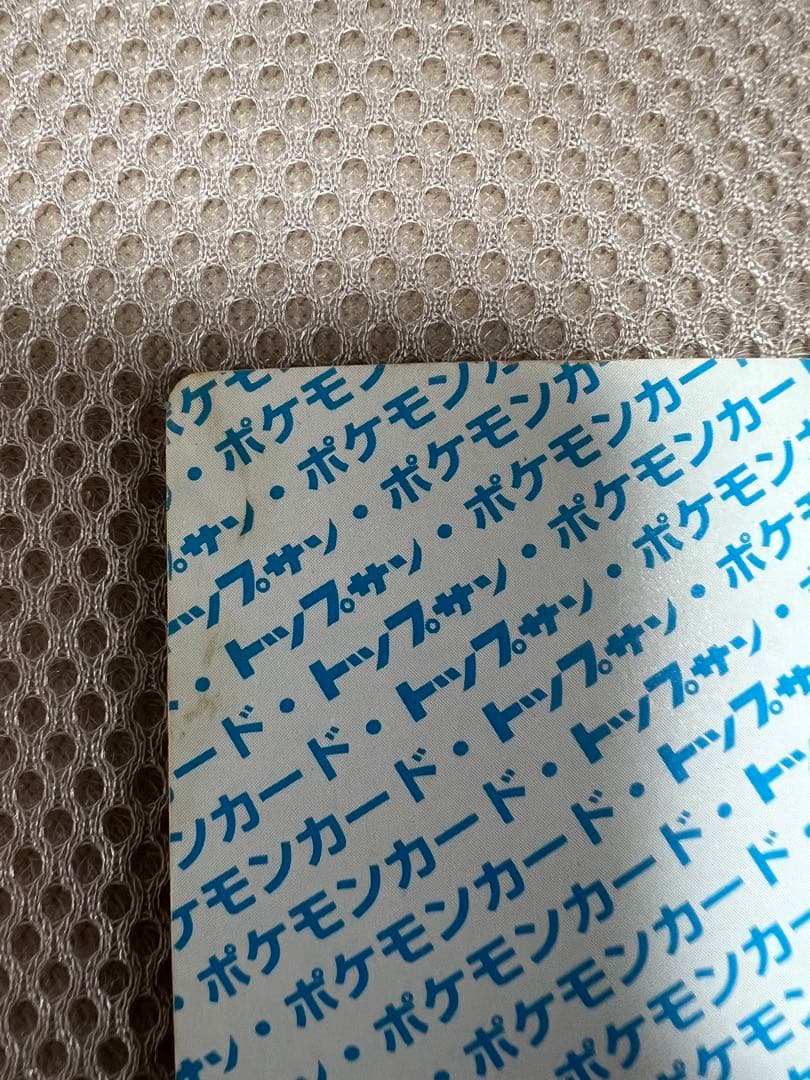 ポケモ
・ポケモン
プサン・ポケモンカ
トップサン・ポケモンカ
・トップサン・ポケモンカー
ード・トップサン・ポケモンカー
ンカード・トップサン・ポケモンカ
ケモンカード・トップサン・ポケ
・ポケモンカード・トップサン・
サン・ポケモンカード・トップサ
・ポケモンカード・トッ
ポケモンカード・
ポケモンカー
ケモン